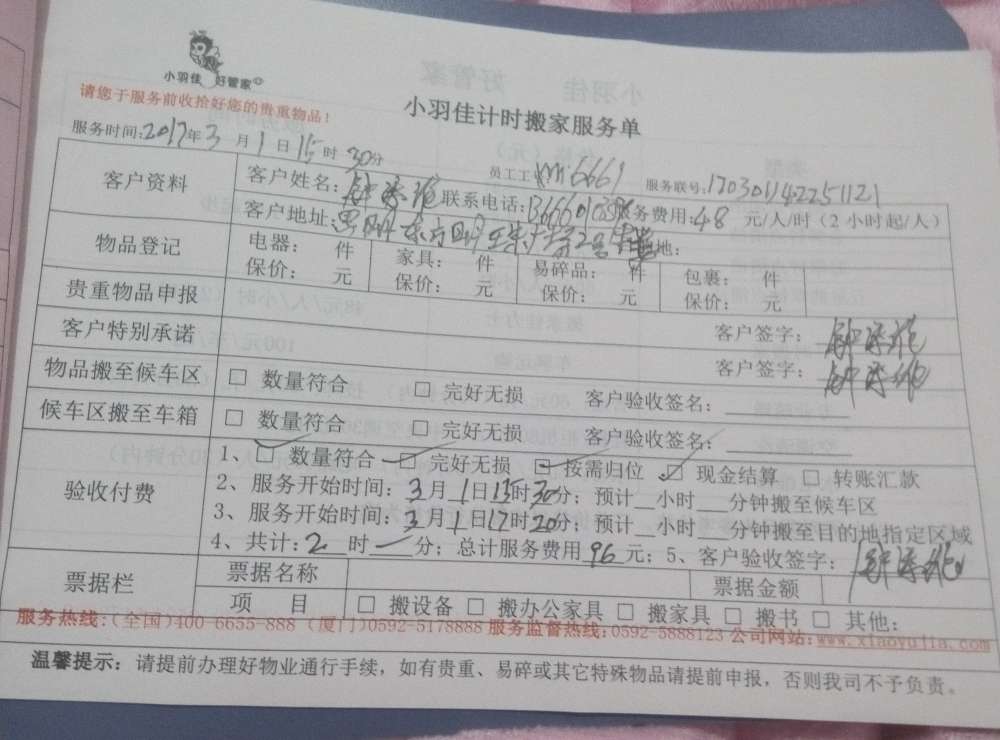 小羽佳 好管家
请您于服务前收拾好您的贵重物品!
小羽佳计时搬家服务单
服务时间:2017年3月1日15时30分
员工工 6661 服务联号:170301142251121
客户资料 客户姓名: 联系电话: 服务费用:48 元/人/时(2小时起/人)
客户地址: 地:
物品登记 电器: 件 家具: 件 易碎品: 件 包裹: 件
保价: 元 保价: 元 保价: 元 保价: 元
贵重物品申报
客户特别承诺 客户签字:
客户签字:
物品搬至候车区 □ 数量符合 □ 完好无损 客户验收签名:
候车区搬至车箱 □ 数量符合 □ 完好无损 客户验收签名:
验收付费 1、□ 数量符合 □ 完好无损 □ 按需归位 ☑ 现金结算 □ 转账汇款
2、服务开始时间:3月1日15时30分;预计__小时___分钟搬至候车区
3、服务开始时间:3月1日17时20分;预计__小时___分钟搬至目的地指定区域
4、共计:2时一分;总计服务费用96元;5、客户验收签字:
票据栏 票据名称 票据金额
项 目 □ 搬设备 □ 搬办公家具 □ 搬家具 □ 搬书 □ 其他:
服务热线:(全国)400-6655-888 (厦门)0592-5178888 服务监督热线:0592-5888123 公司网站:www.xiaoyujia.com
温馨提示:请提前办理好物业通行手续,如有贵重、易碎或其它特殊物品请提前申报,否则我司不予负责。